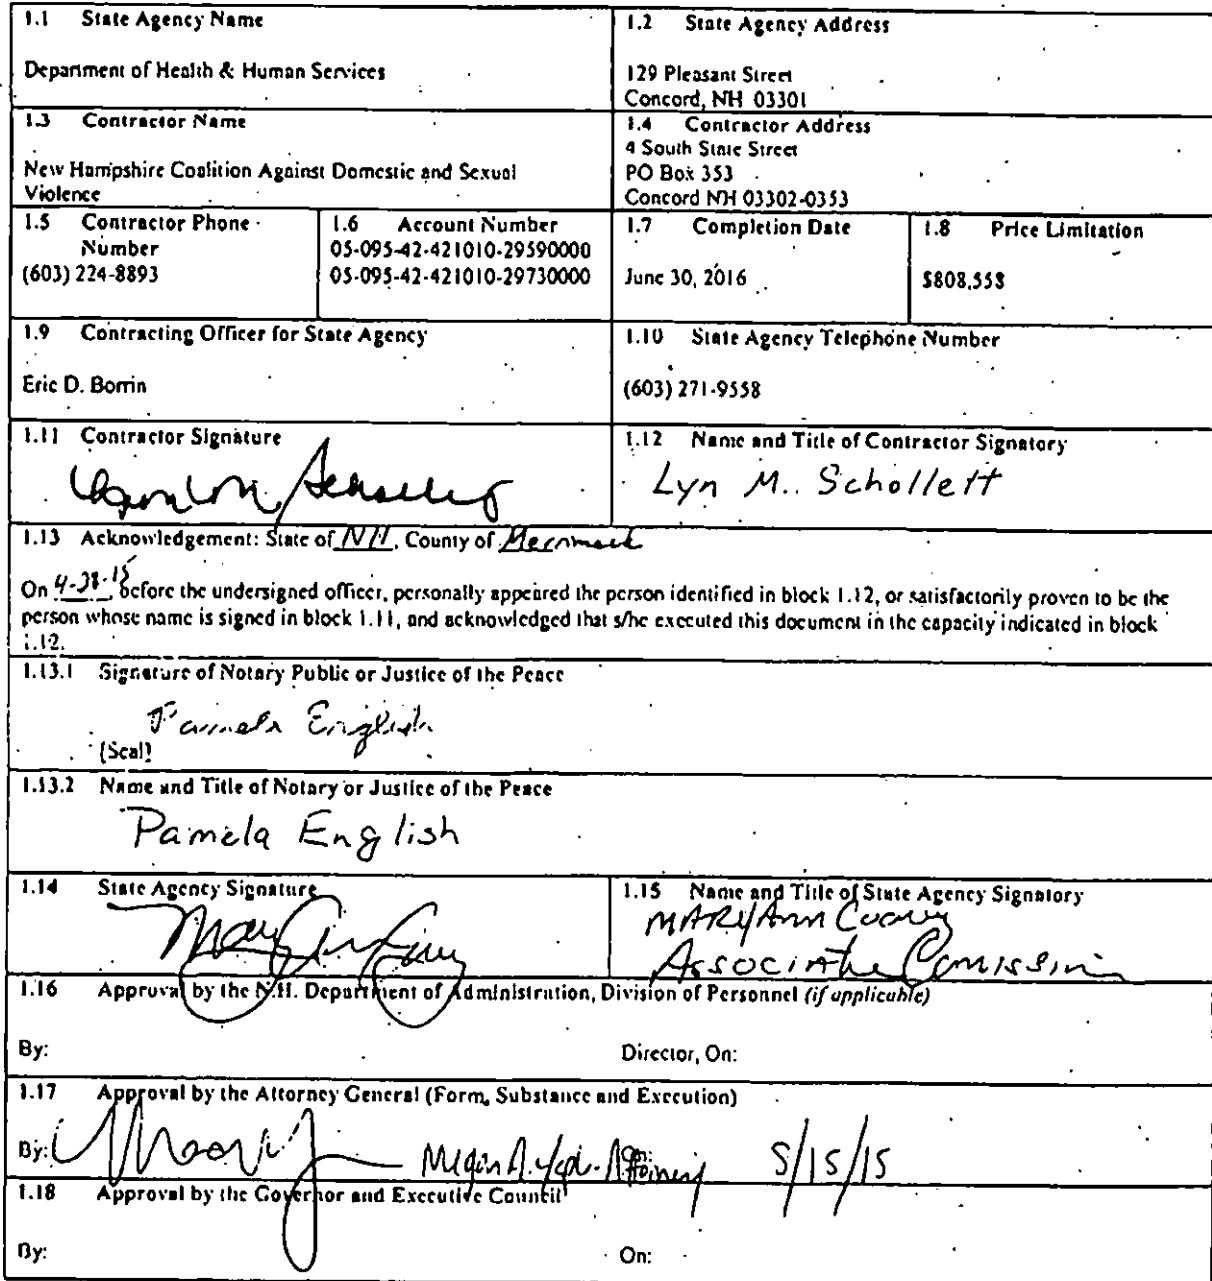 1.1 State Agency Name
Department of Health & Human Services
1.2 State Agency Address
129 Pleasant Street
Concord, NH 03301
1.3 Contractor Name
New Hampshire Coalition Against Domestic and Sexual
Violence
1.4 Contractor Address
4 South State Street
PO Box 353
Concord NH 03302-0353
1.5 Contractor Phone
Number
(603) 224-8893
1.6 Account Number
05-095-42-421010-29590000
05-095-42-421010-29730000
1.7 Completion Date
June 30, 2016
1.8 Price Limitation
$808,558
1.9 Contracting Officer for State Agency
Eric D. Borrin
1.10 State Agency Telephone Number
(603) 271-9558
1.11 Contractor Signature
1.12 Name and Title of Contractor Signatory
Lyn M. Schollett
1.13 Acknowledgement: State of NH, County of Merrimack
On before the undersigned officer, personally appeared the person identified in block 1.12, or satisfactorily proven to be the
person whose name is signed in block 1.11, and acknowledged that s/he executed this document in the capacity indicated in block
1.12.
1.13.1 Signature of Notary Public or Justice of the Peace
Pamela English
[Seal]
1.13.2 Name and Title of Notary or Justice of the Peace
Pamela English
1.14 State Agency Signature
1.15 Name and Title of State Agency Signatory
MARY Ann Cooney
Associate
1.16 Approval by the N.H. Department of Administration, Division of Personnel (if applicable)
By: Director, On:
1.17 Approval by the Attorney General (Form, Substance and Execution)
By: On: 5/15/15
1.18 Approval by the Governor and Executive Council
By: On: